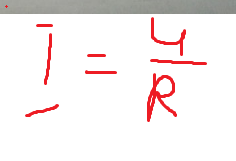 I = U/R